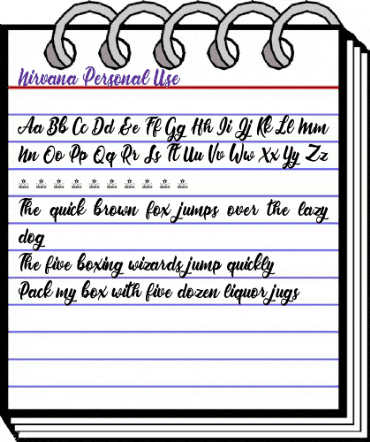 Nirvana Personal Use
Aa Bb Cc Dd Ee Ff Gg Hh Ii Jj Kk Ll Mm
Nn Oo Pp Qq Rr Ss Tt Uu Vv Ww Xx Yy Zz
The quick brown fox jumps over the lazy
dog
The five boxing wizards jump quickly
Pack my box with five dozen liquor jugs